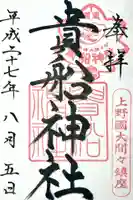 奉拝
上野國大間々鎮座
貴船神社
平成二十七年八月五日